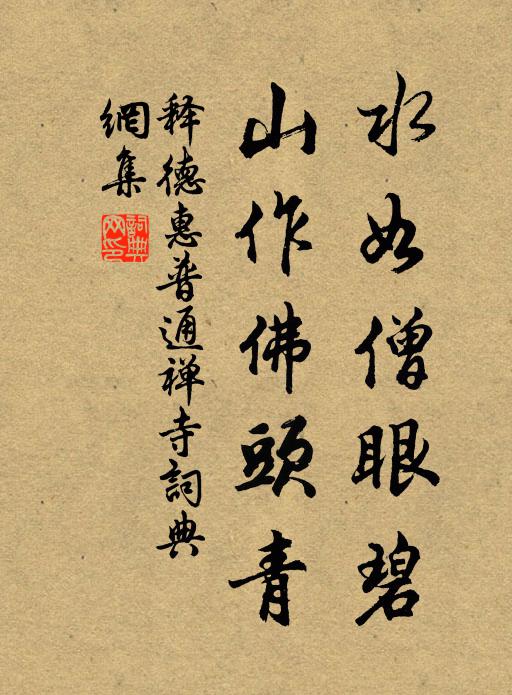 水如僧眼碧
山作佛頭青
释德惠普通禅寺詞典
網集
詞典
网印